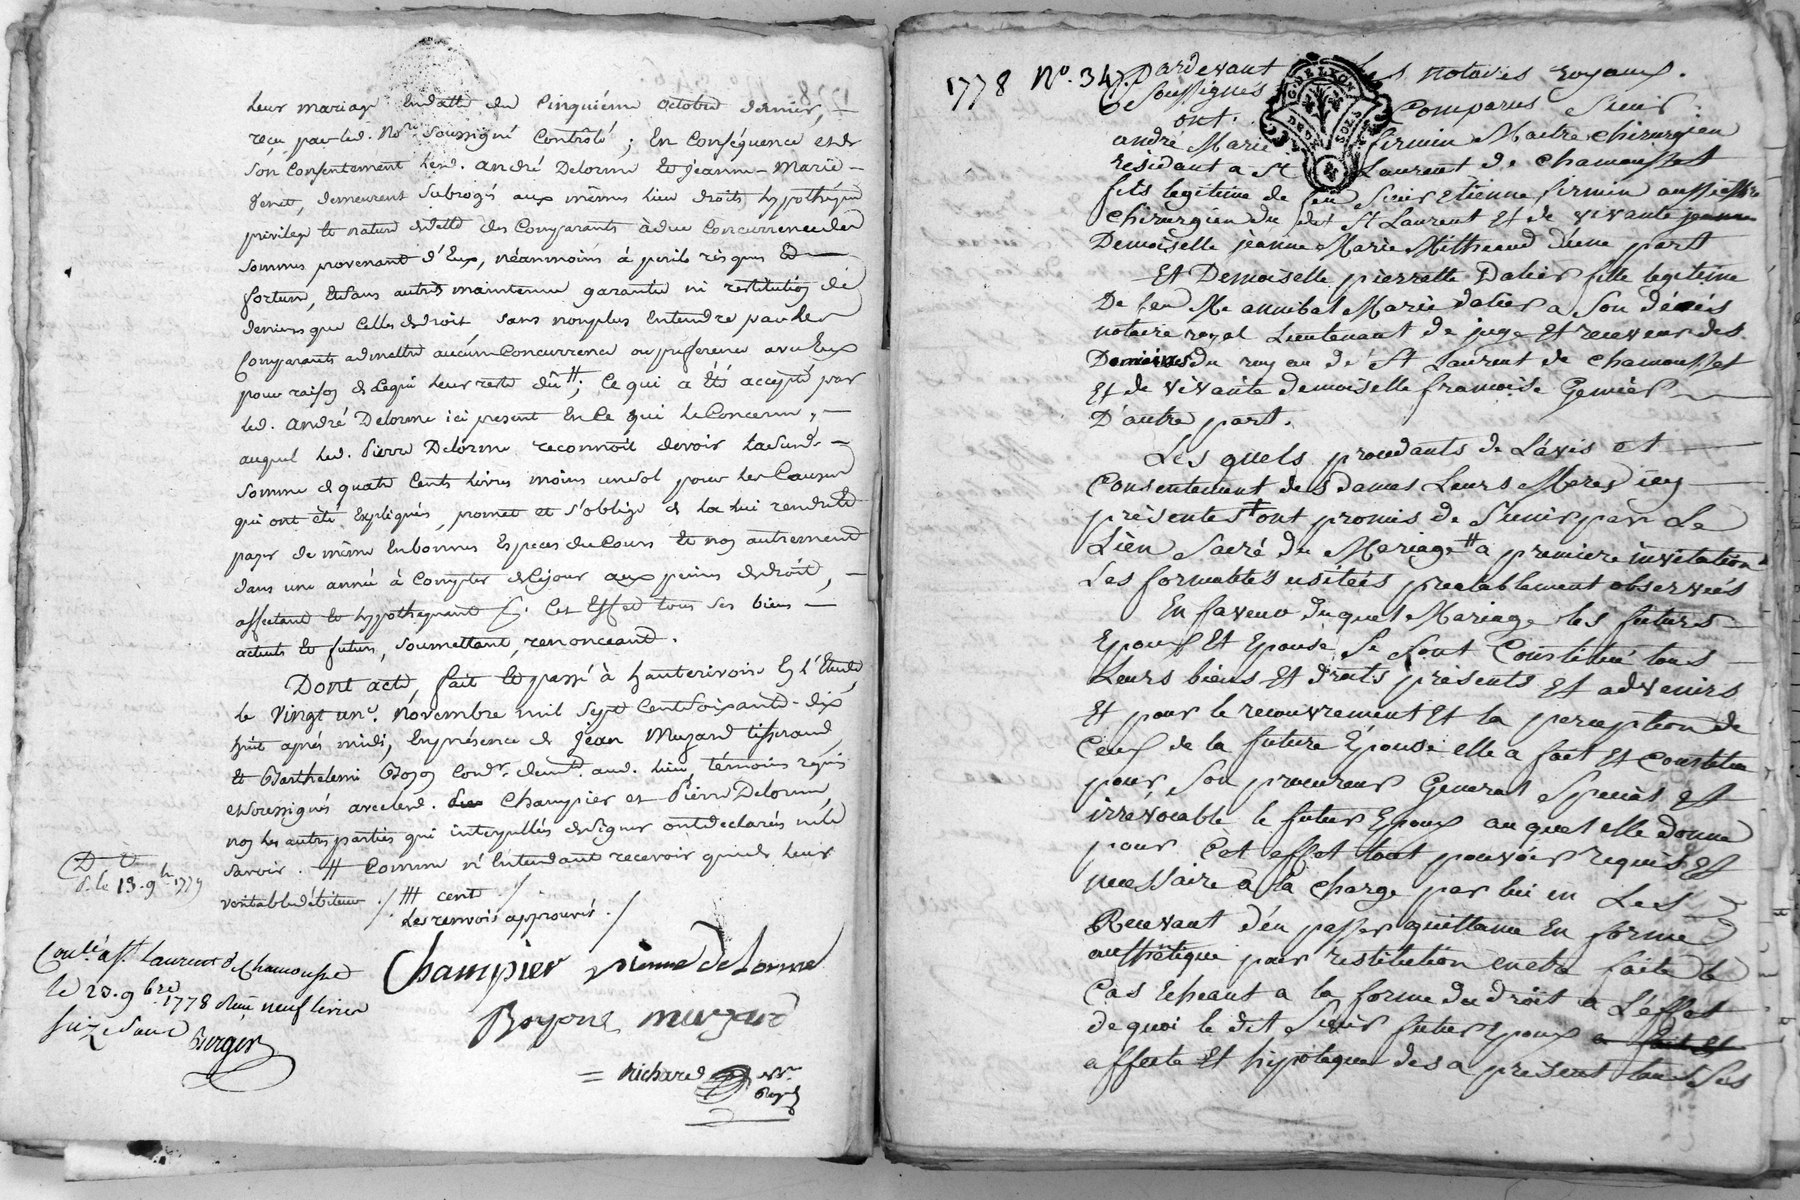 leur mariage en datte du cinquiéme octobre dernier,
reçu par led. No.re soussigné controlé ; En Conséquence et de
son Consentement lesd. andré Delorme et Jeanne-Marie
demeurent subrogés aux mêmes lieu droits hypothéque
privilege et nature de dette des Comparants à due Concurrence des
sommes provenant d'Eux, néanmoins à perils risques et
fortune, et sans autres maintenue garantie ni restitution de
deniers que celles de droit sans non plus Entendre par les
Comparants admettre aucun Concurrence ou preference avec Eux
pour raison de ce qui leur reste dû # ; Ce qui a été accepté par
led. andré Delorme ici present En ce qui le Concerne,
auquel led. Pierre Delorme reconnoit devoir lad.
somme de quatre Cents livres moins un sol pour les Causes
qui ont été Expliqués, promet et s'oblige de la lui rendre et
payer de même En bonnes Especes du Cours et non autrement
dans une année à Compter de ce jour aux peines de droit,
affectant et hypothequant Cet Effet tous ses biens
actuels et futurs, soumettant, renonceant.
Dont acte, fait et passé à hauterivoire En l'Etude
le vingt un.e novembre mil sept Cent soixante-dix
huit aprés midi, En présence de Jean Muzard tisserand
et Barthelemi Boyon aud. lieu témoins requis
et soussignés avec lesd. Champier et Pierre Delorme
non les autres parties qui interpellés de signer ont declarés ne le
savoir. # Comme n'Entendant recevoir que de leur
veritable débiteur / ### cent /
les renvois approuvés. /
D
d. le 13. 9b 1779
Champier pierre delorme
Boyone muzard
Con.lé à S.t Laurent de Chamousset
le 23. 9bre 1778 Reçu neuf livres
Berger
= richard
1778 N.o 347. Pardevant les notaires Royaux.
Soussignés
ont. Comparus Sieur
andré Marie firmin Maitre chirurgien
residant a St Laurent de chamousset
fils legitime de feu Sieur Etienne firmin aussi Mtre
chirurgien du dit St Laurent Et de vivante
Demoiselle jeanne Marie Mitheaud d'une part
Et Demoiselle pierrette Dalier fille legitime
De feu Me annibal Marie dalier a Son décès
notaire royal Lieutenant de juge Et receveur des
Domaines du roy au de St Laurent de chamousset
Et de vivante demoiselle francoise Genier
D'autre part.
Les quels procedants de L'avis et
Consentement des dames Leurs Meres icy
présentes + ont promis de S'unir par Le
Lien Sacré du Mariage # a premiere invitation
Les formalités usitées prealablement observées
En faveur du quel Mariage les futurs
Epoux Et Epouse Se Sont Constitué tous
Leurs biens Et droits présents Et advenirs
Et pour le recouvrement Et la perception de
Ceux de la future Épouse elle a fait Et constitué
pour Son procureur General Special Et
irrévocable le futur Epoux au quel elle donne
pour Cet effet tout pouvoir requis Et
necessaire a la charge par lui en Les
Recevant d'en passer quittance En forme
authëtique pour restitution en etre faite le
Cas Echeant a la forme du droit a L'effet
de quoi le dit Sieur futur Epoux a fait Et
affecte Et hypoteque des a present tous Ses